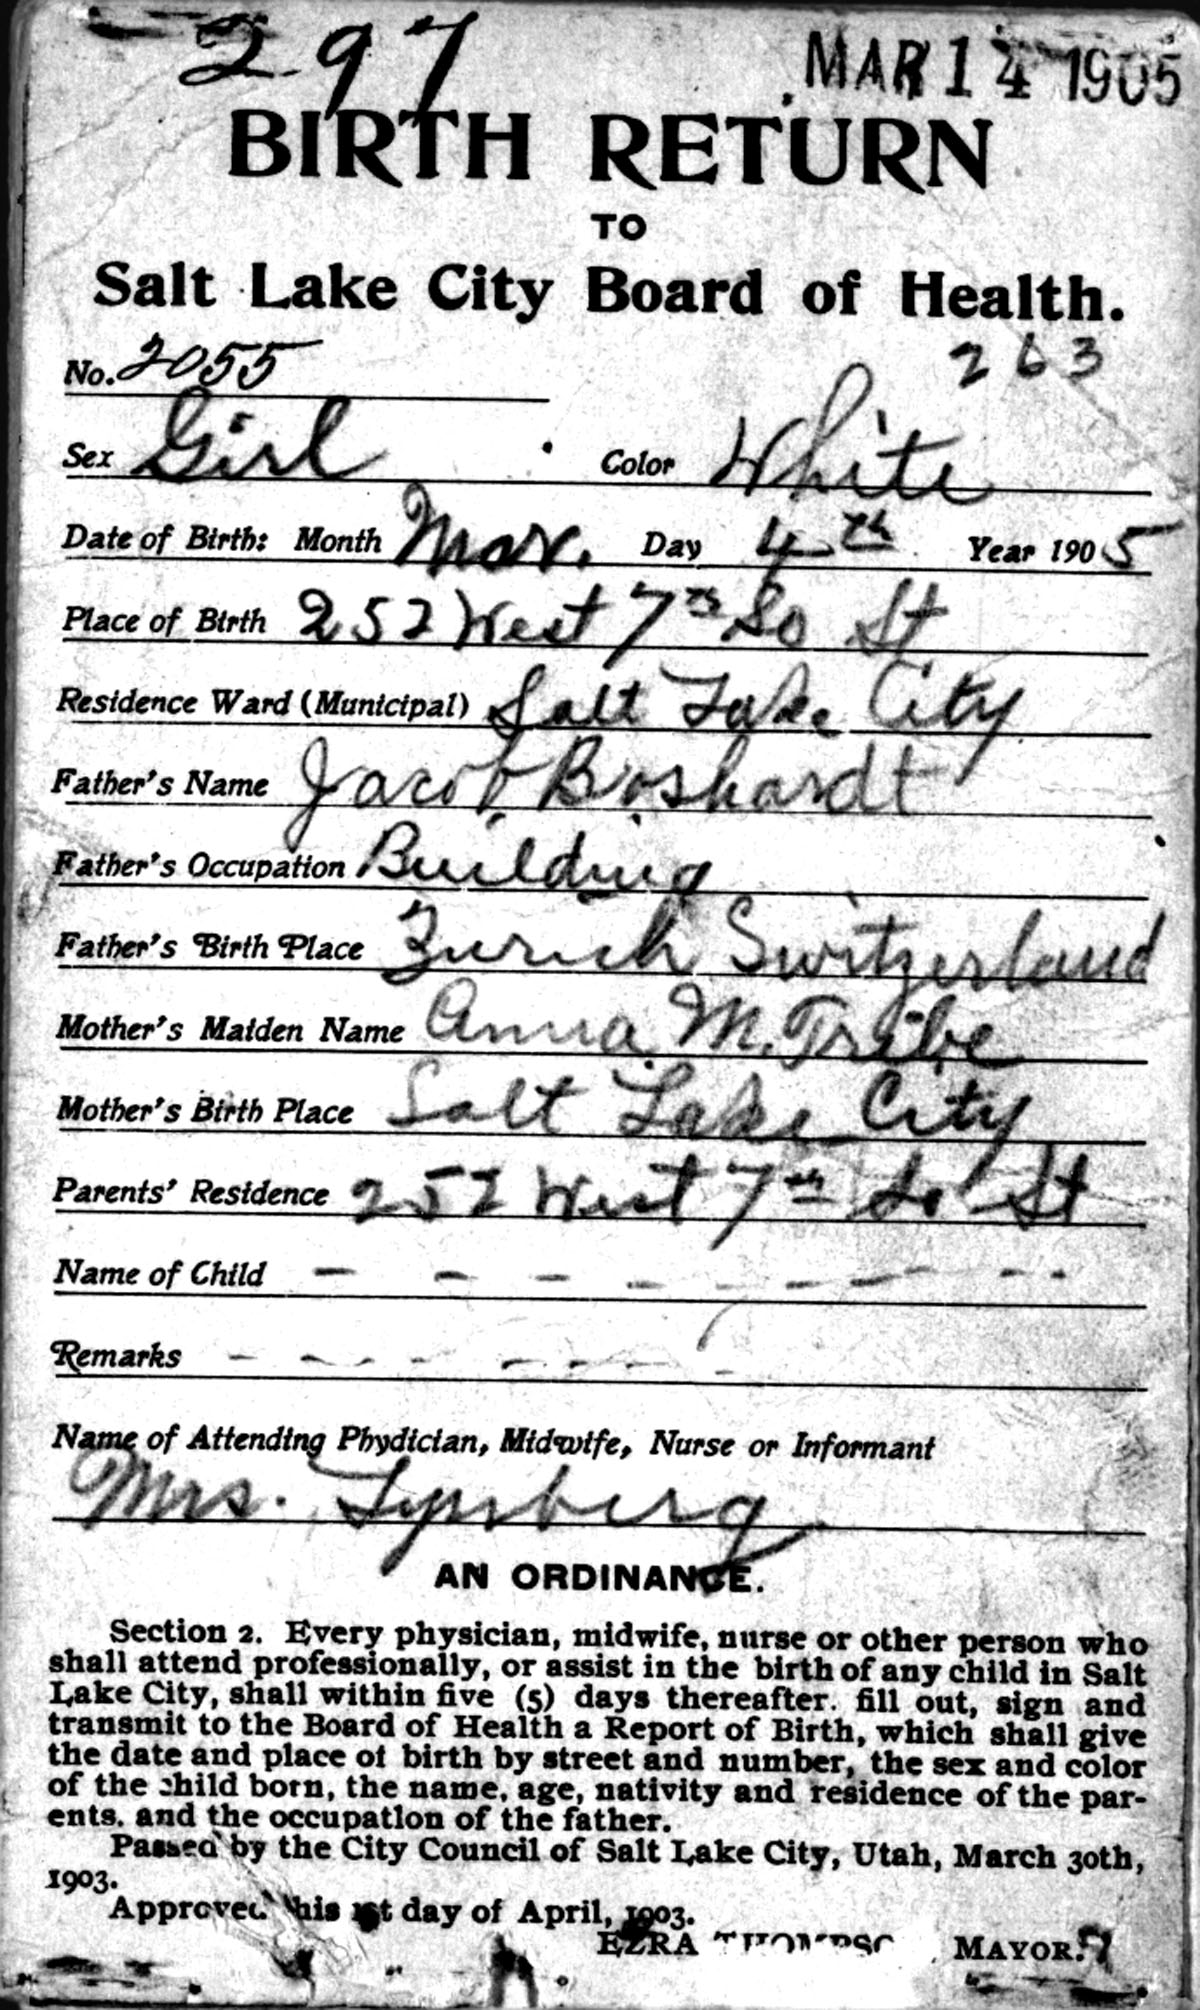 297 MAR 14 1905
BIRTH RETURN
TO
Salt Lake City Board of Health.
263
No. 2055
Sex Girl Color White
Date of Birth: Month Mar. Day 4th Year 1905
Place of Birth 252 West 7th So St
Residence Ward (Municipal) Salt Lake City
Father's Name Jacob Boshardt
Father's Occupation Building
Father's Birth Place Zurich Switzerland
Mother's Maiden Name Anna M. Tribe
Mother's Birth Place Salt Lake City
Parents' Residence 252 West 7th So St
Name of Child - - - - - - - - -
Remarks - - - - - - - -
Name of Attending Phydician, Midwife, Nurse or Informant
Mrs.
AN ORDINANCE.
Section 2. Every physician, midwife, nurse or other person who
shall attend professionally, or assist in the birth of any child in Salt
Lake City, shall within five (5) days thereafter. fill out, sign and
transmit to the Board of Health a Report of Birth, which shall give
the date and place of birth by street and number, the sex and color
of the child born, the name, age, nativity and residence of the par-
ents. and the occupation of the father.
Passed by the City Council of Salt Lake City, Utah, March 30th,
1903.
Approved this 1st day of April, 1903.
EZRA THOMPSO MAYOR.